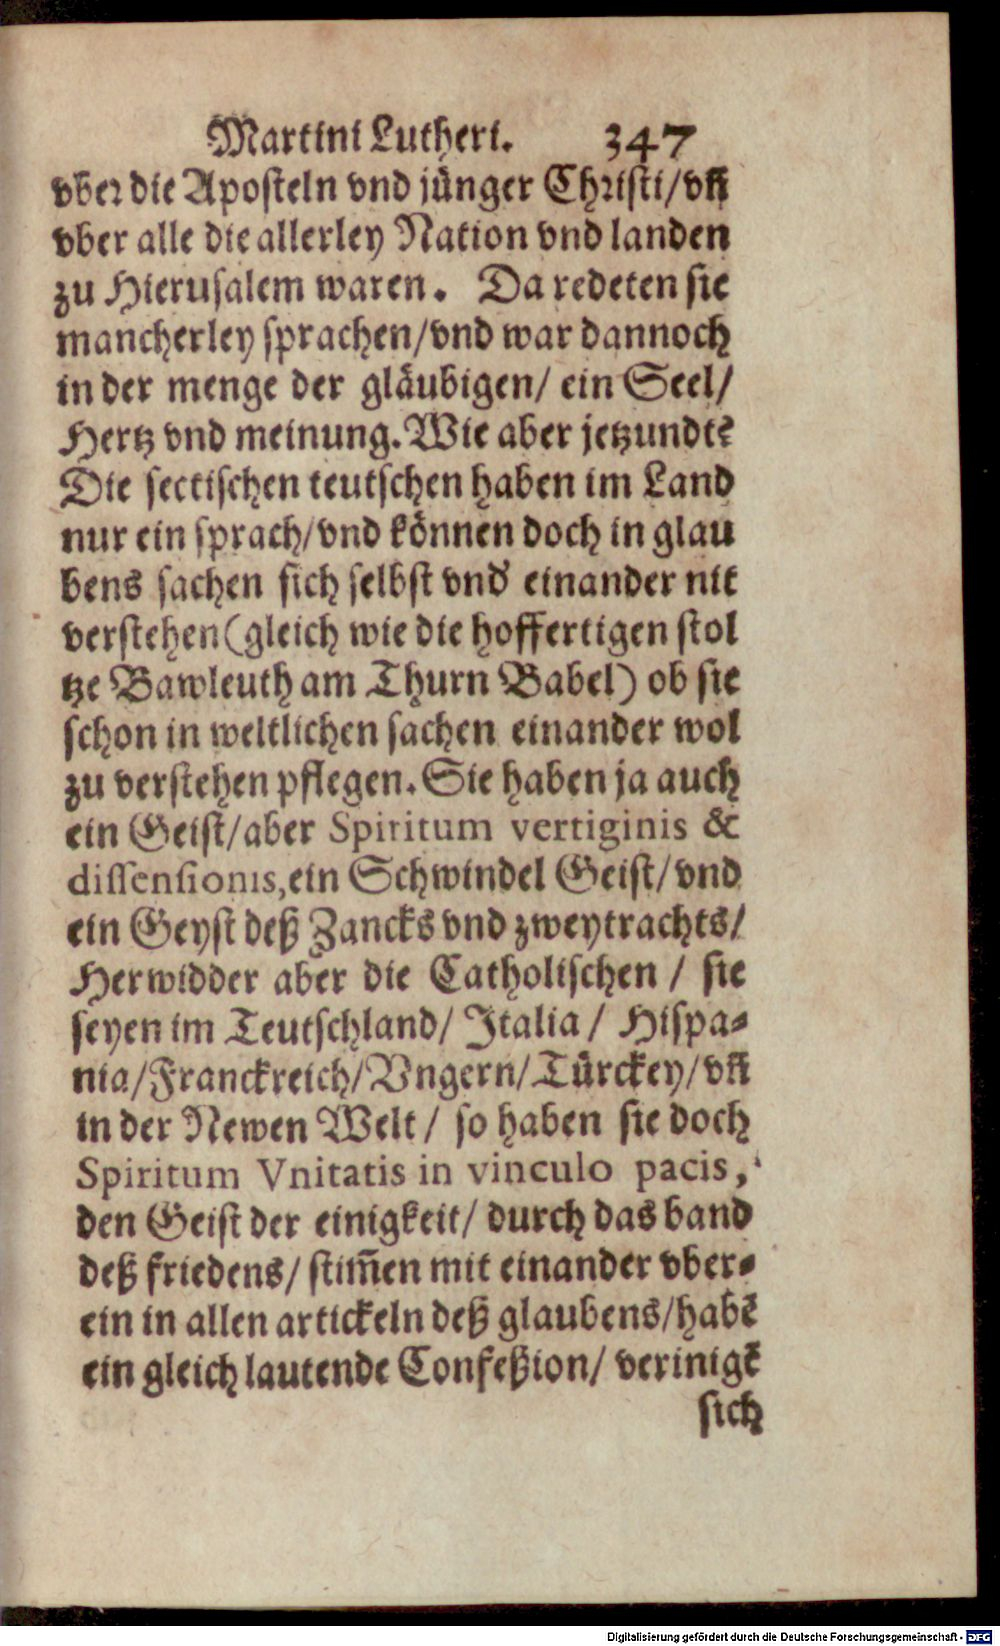 Martini Lutheri. 347
vber die Aposteln vnd jünger Christi/vñ
vber alle die allerley Nation vnd landen
zu Hierusalem waren. Da redeten sie
mancherley sprachen/vnd war dannoch
in der menge der gläubigen/ ein Seel/
Hertz vnd meinung. Wie aber jetzundt?
Die sectischen teutschen haben im Land
nur ein sprach/vnd können doch in glau
bens sachen sich selbst vnd einander nit
verstehen (gleich wie die hoffertigen stol
tze Bawleuth am Thurn Babel) ob sie
schon in weltlichen sachen einander wol
zu verstehen pflegen. Sie haben ja auch
ein Geist/aber Spiritum vertiginis &
dissensionis, ein Schwindel Geist/ vnd
ein Geyst deß Zancks vnd zweytrachts/
Herwidder aber die Catholischen / sie
seyen im Teutschland/ Italia / Hispa-
nia/Franckreich/Vngern/Türckey/vñ
in der Newen Welt / so haben sie doch
Spiritum Vnitatis in vinculo pacis,
den Geist der einigkeit/ durch das band
deß friedens/ stim̃en mit einander vber-
ein in allen artickeln deß glaubens/habē
ein gleich lautende Confeßion/ verinigē
sich
Digitalisierung gefördert durch die Deutsche Forschungsgemeinschaft - DFG